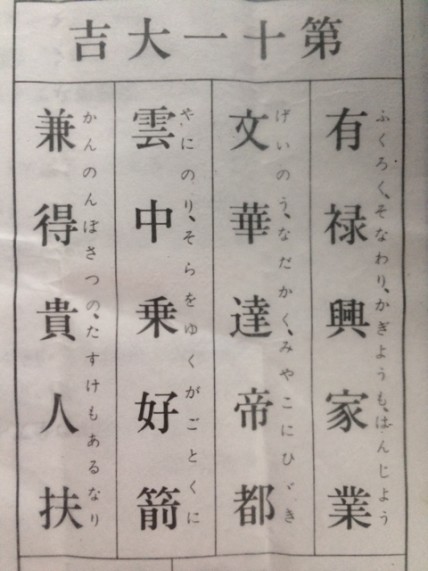 第十一大吉
有禄興家業
ふくろく、そなわり、かぎようも、はんじよう
文華達帝都
げいのう、なだかく、みやこにひゞき
雲中乗好箭
やにのり、そらをゆくがごとくに
兼得貴人扶
かんのんぼさつの、たすけもあるなり